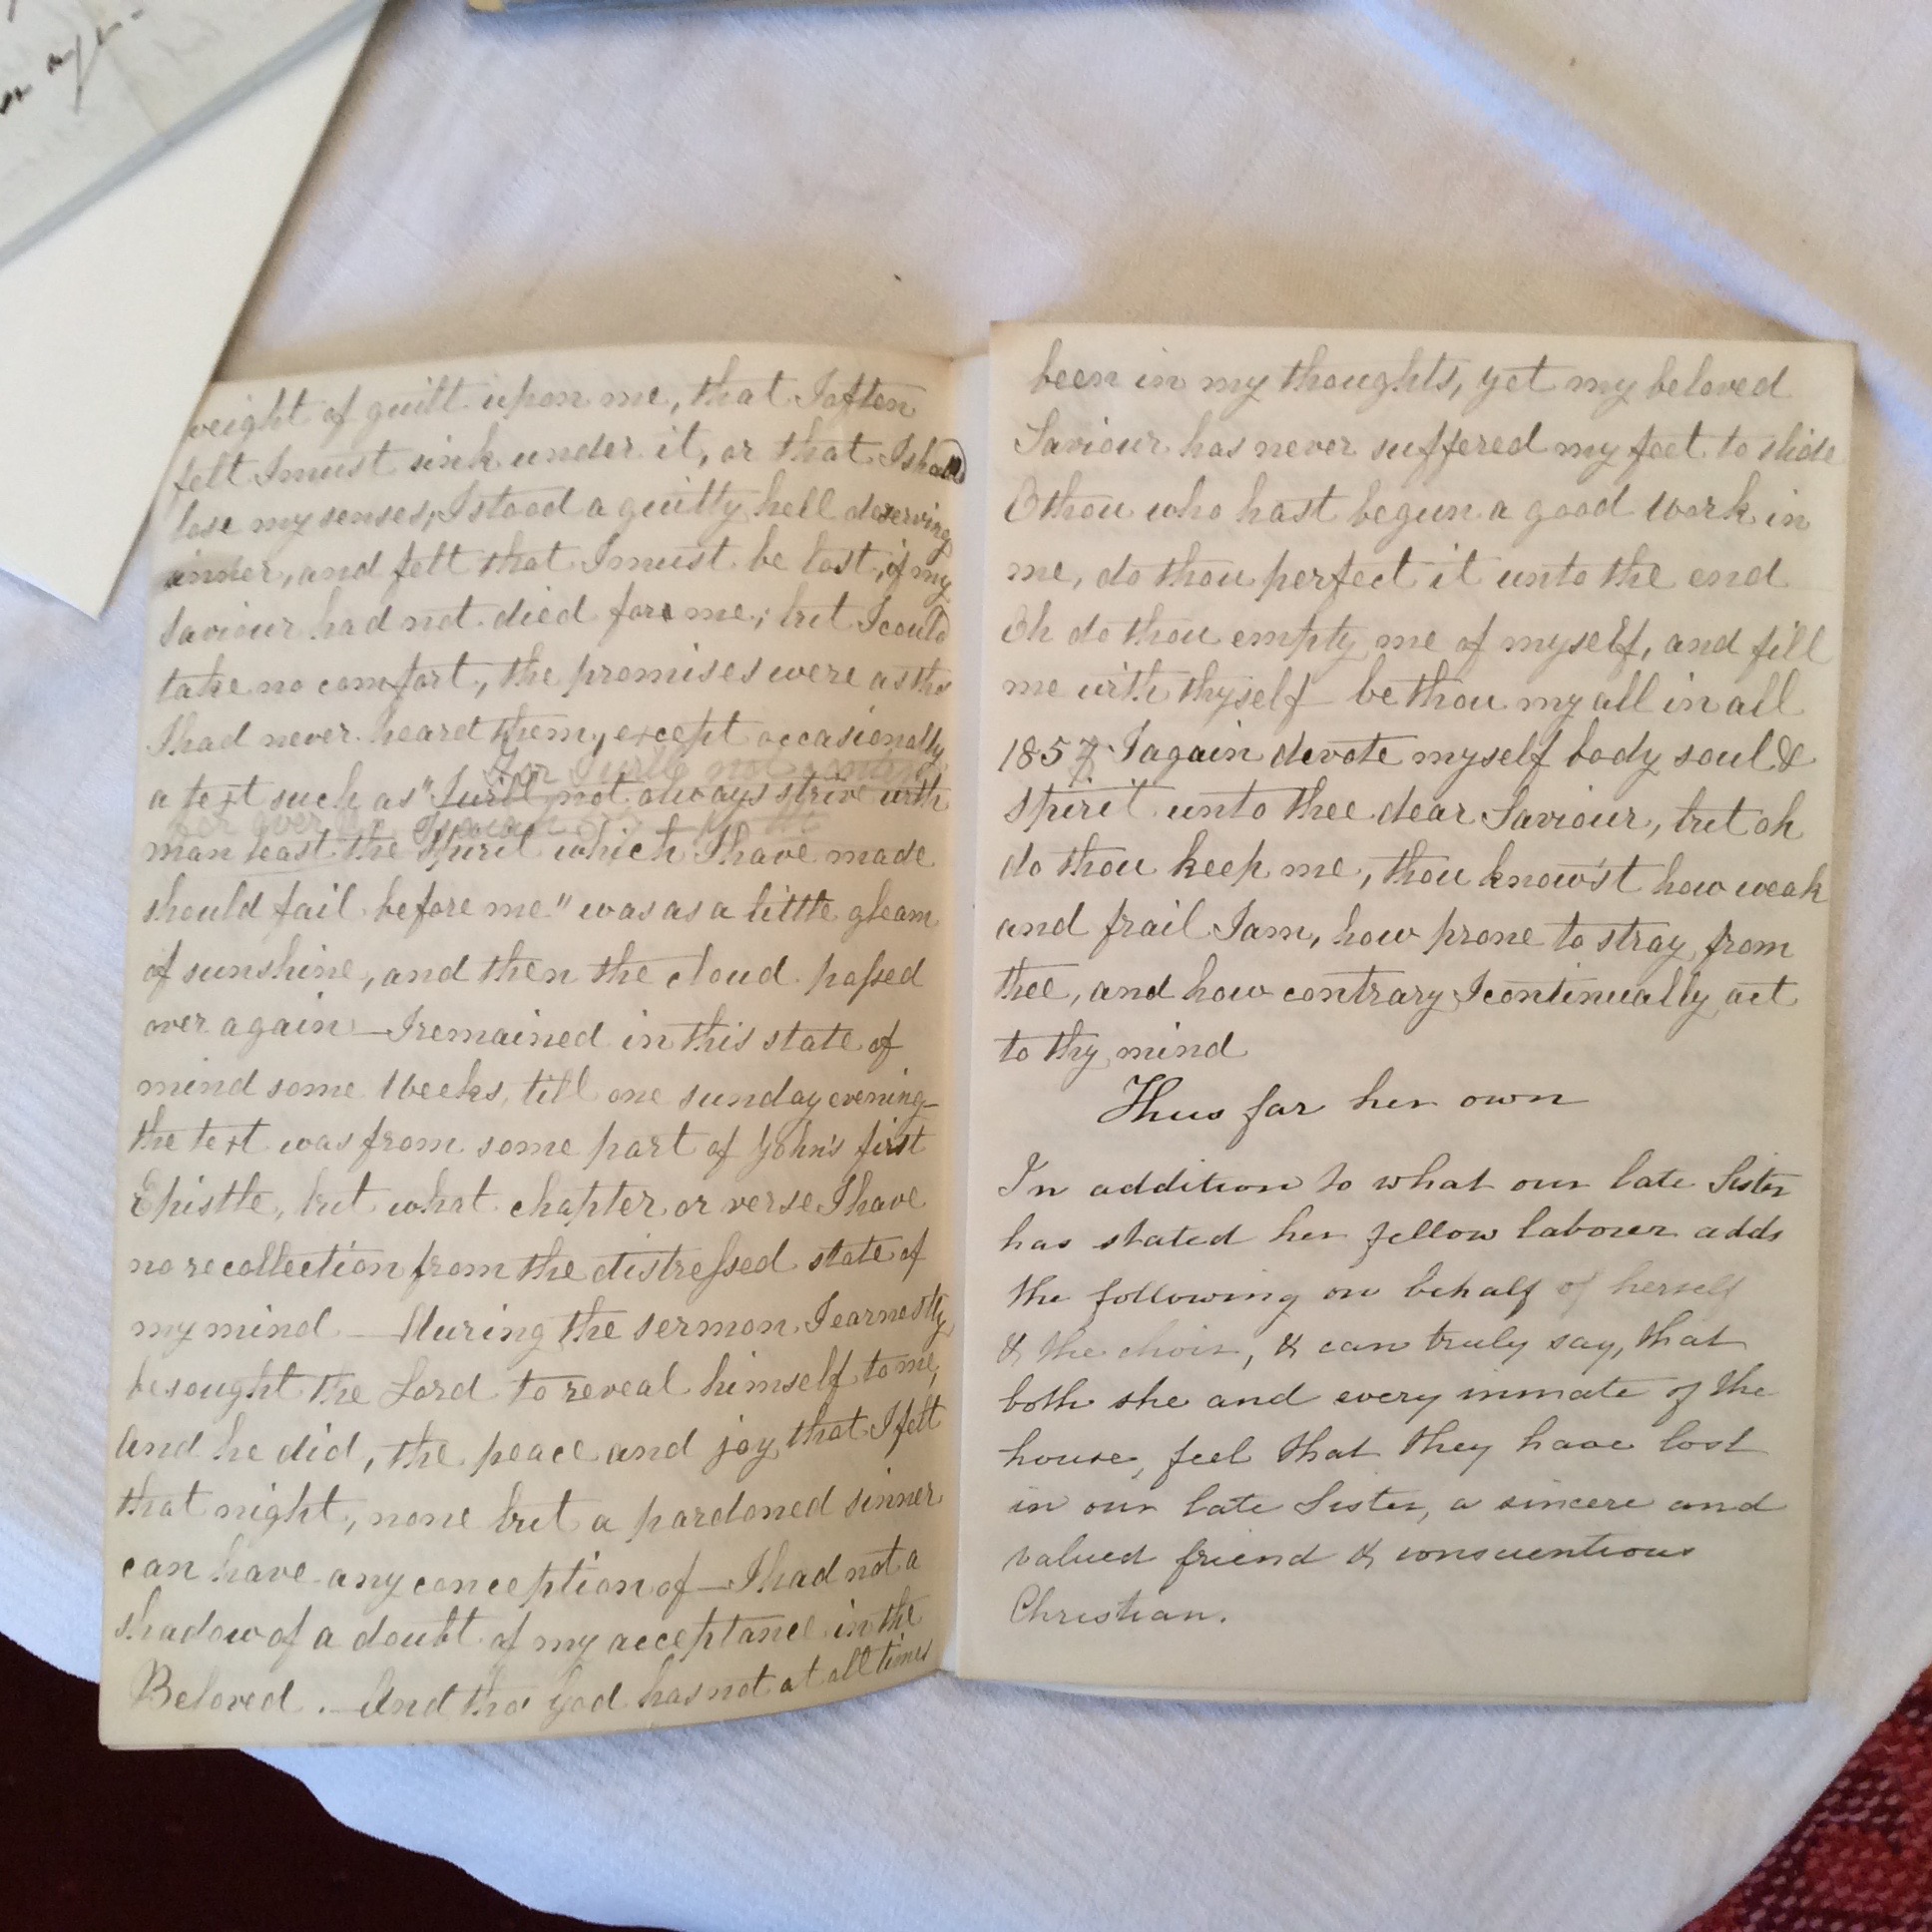 weight of guilt upon me, that I often
felt I must sink under it, or that I should
lose my senses, I stood a guilty hell deserving
sinner, and felt that I must be lost, if my
Saviour had not died for me; but I could
take no comfort, the promises were as tho
I had never heard them, except occasionally
For I will not contend
a text such as "I will not always strive with
for ever
man least the Spirit which I have made
should fail before me" was as a little gleam
of sunshine, and then the cloud passed
over again — I remained in this state of
mind some weeks, till one sunday evening—
the text was from some part of John's first
Epistle, but what chapter or verse I have
no recollection from the distressed state of
my mind — During the sermon I earnestly
besought the Lord to reveal himself to me,
And he did, the peace and joy that I felt
that night, none but a pardoned sinner
can have any conception of — I had not a
shadow of a doubt of my acceptance in the
Beloved. — And tho' God has not at all times
been in my thoughts, yet my beloved
Saviour has never suffered my feet to slide
O thou who hast begun a good work in
me, do thou perfect it unto the end
Oh do thou empty me of myself, and fill
me with thyself — be thou my all in all
1857 I again devote myself body soul &
spirit unto thee dear Saviour, but oh
do thou keep me, thou know'st how weak
and frail I am, how prone to stray from
thee, and how contrary I continually act
to thy mind
Thus far her own
In addition to what our late Sister
has stated her fellow labourer adds
the following on behalf of herself
& the choir, & can truly say, that
both she and every inmate of the
house, feel that they have lost
in our late Sister, a sincere and
valued friend & conscientious
Christian.